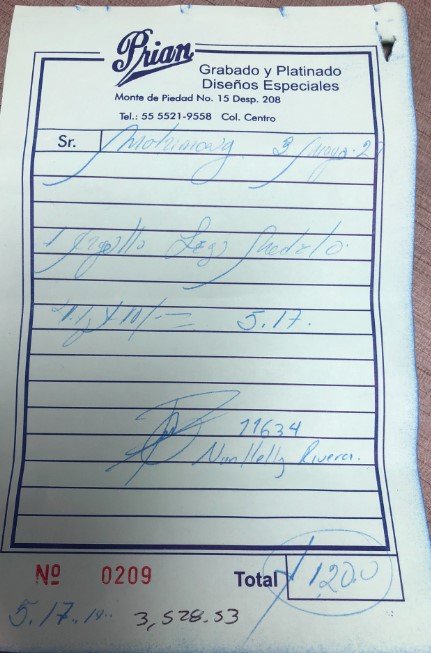 Prian
Grabado y Platinado
Diseños Especiales
Monte de Piedad No. 15 Desp. 208
Tel.: 55 5521-9558 Col. Centro
Sr. 3 Mayo 2
1 Argolla
5.17.
11634
Nanllelly Rivera.
Nº 0209 Total 120.0
5.17. 3,528.53